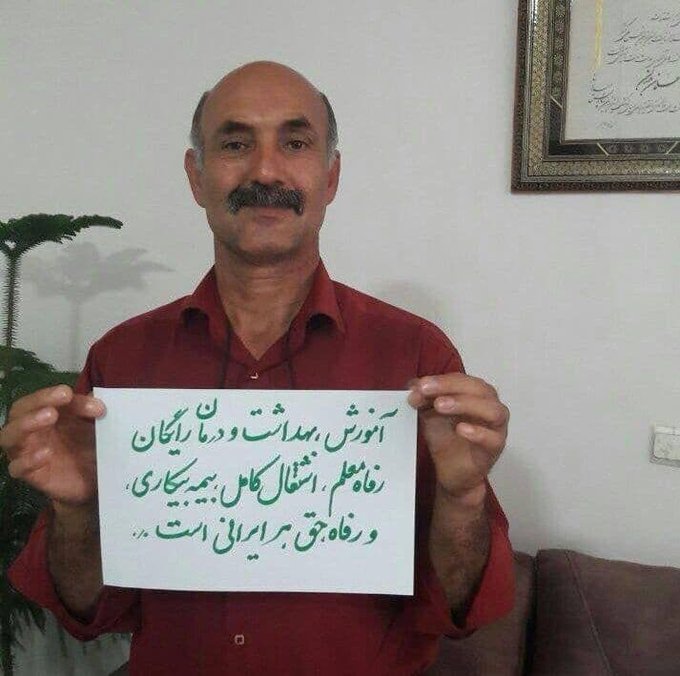 آموزش، بهداشت و درمان رایگان
رفاه معلم، اشتغال کامل، بیمه بیکاری،
و رفاه حق هر ایرانی است